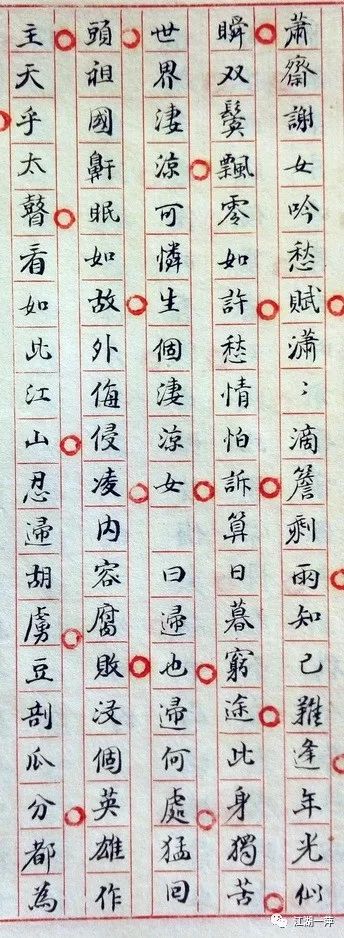 蕭齋謝女吟愁賦瀟〻滴簷剩雨知己難逢年光似
瞬双鬓飄零如許愁情怕訴算日暮窮途此身獨苦
世界淒涼可憐生個淒涼女　曰歸也歸何處猛回
頭祖國鼾眠如故外侮侵凌内容腐敗没個英雄作
主天乎太瞽看如此江山忍歸胡虜豆剖瓜分都為
江湖一萍